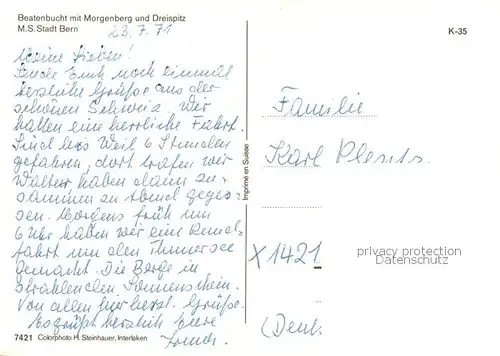 Beatenbucht mit Morgenberg und Dreispitz
M.S. Stadt Bern
23.7.71
K-35
Meine Lieben!
Sende Euch noch einmal
herzliche Grüße aus der
schönen Schweiz. Wir
hatten eine herrliche Fahrt.
Sind bis Weil 6 Stunden
gefahren, dort trafen wir
Walter haben dann zu-
sammen zu Abend geges-
sen. Morgens früh um
6 Uhr haben wir eine Rund-
fahrt um den Thunersee
gemacht. Die Berge in
strahlenden Sonnenschein.
Von allen hier herzl. Grüße.
Es grüßt herzlich Eure
Familie
Karl
X1421
(Deut
privacy protection
Datenschutz
Imprimé en Suisse
7421 Colorphoto H. Steinhauer, Interlaken